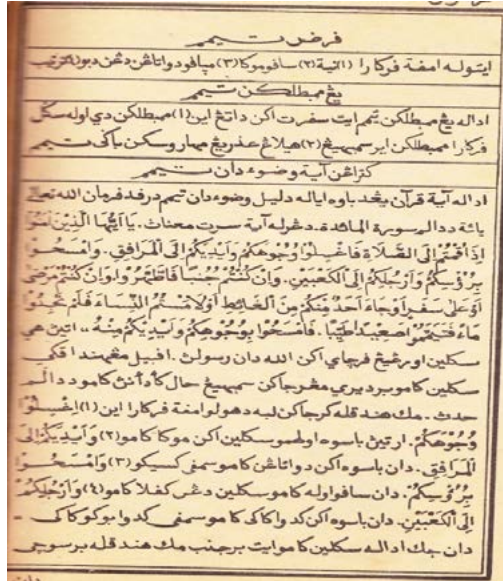 فرض تيمم
ايتوله امفة فركارا (١) نية (٢) سافو موكا (٣) مپافو دوا تاڠن دڠن دبو (٤) ترتيب
يڠ ممبطلكن تيمم
اداله يڠ ممبطلكن تيمم ايت سفرت اكن داتڠ اين (١) ممبطلكن دي اوله سكل
فركارا ممبطلكن اير سمبهيڠ (٢) هيلڠ عذر يڠ مهاروسكن باكي تيمم
كتراڠن آية وضوء دان تيمم
اداله آية قرآن يڠ دباوه اياله دليل وضوء دان تيمم درفد فرمان الله تعالى
يائة ددالم سورة المائدة. دڠرله آية سرت معناث. يَا أَيُّهَا الَّذِينَ آمَنُوا
إِذَا قُمْتُمْ إِلَى الصَّلَاةِ فَاغْسِلُوا وُجُوهَكُمْ وَأَيْدِيَكُمْ إِلَى الْمَرَافِقِ. وَامْسَحُوا
بِرُءُوسِكُمْ وَأَرْجُلَكُمْ إِلَى الْكَعْبَيْنِ. وَإِنْ كُنْتُمْ جُنُبًا فَاطَّهَّرُوا وَإِنْ كُنْتُمْ مَرْضَى
أَوْ عَلَى سَفَرٍ أَوْ جَاءَ أَحَدٌ مِنْكُمْ مِنَ الْغَائِطِ أَوْ لَامَسْتُمُ النِّسَاءَ فَلَمْ تَجِدُوا
مَاءً فَتَيَمَّمُوا صَعِيدًا طَيِّبًا. فَامْسَحُوا بِوُجُوهِكُمْ وَأَيْدِيكُمْ مِنْهُ،، ارتيڽ هي
سكلين اورڠ يڠ فرچاي اكن الله دان رسولڽ. افبيل مڠهنداقكي
سكلين كامو برديري مڠرجاكن سمبهيڠ حال كأدأنڽ كامو ددالم
حدث. مك هندقله كرجاكن لبه دهولو امفة فركارا اين (١) اِغْسِلُوْا
وُجُوْهَكُمْ. ارتيڽ باسوه اولهمو سكلين اكن موكا كامو (٢) وَأَيْدِيَكُمْ إِلَى
الْمَرَافِقِ. دان باسوه اكن دوا تاڠن كامو سمفي كسيكو (٣) وَامْسَحُوْا
بِرُءُوْسِكُمْ. دان سافو اوله كامو سكلين دڠن كفلا كامو (٤) وَأَرْجُلَكُمْ
إِلَى الْكَعْبَيْنِ. دان باسوه اكن كدوا كاكي كامو سمفي كدوا بوكو كاكي -
دان جك اداله سكلين كامو ايت برجنب مك هندقله برسوچي